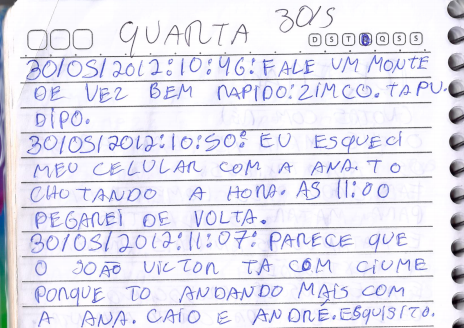 QUARTA 30/5
D S T Q Q S S
30/05/2012:10:46: FALE UM MONTE
DE VEZ BEM RAPIDO: ZIMCO. TAPU.
DIPO.
30/05/2012:10:50: EU ESQUECI
MEU CELULAR COM A ANA. TO
CHOTANDO A HORA. AS 11:00
PEGAREI DE VOLTA.
30/05/2012:11:07: PARECE QUE
O JOÃO VICTOR TA COM CIUME
PORQUE TO ANDANDO MAIS COM
A ANA. CAIO E ANDRÉ. ESQUISITO.